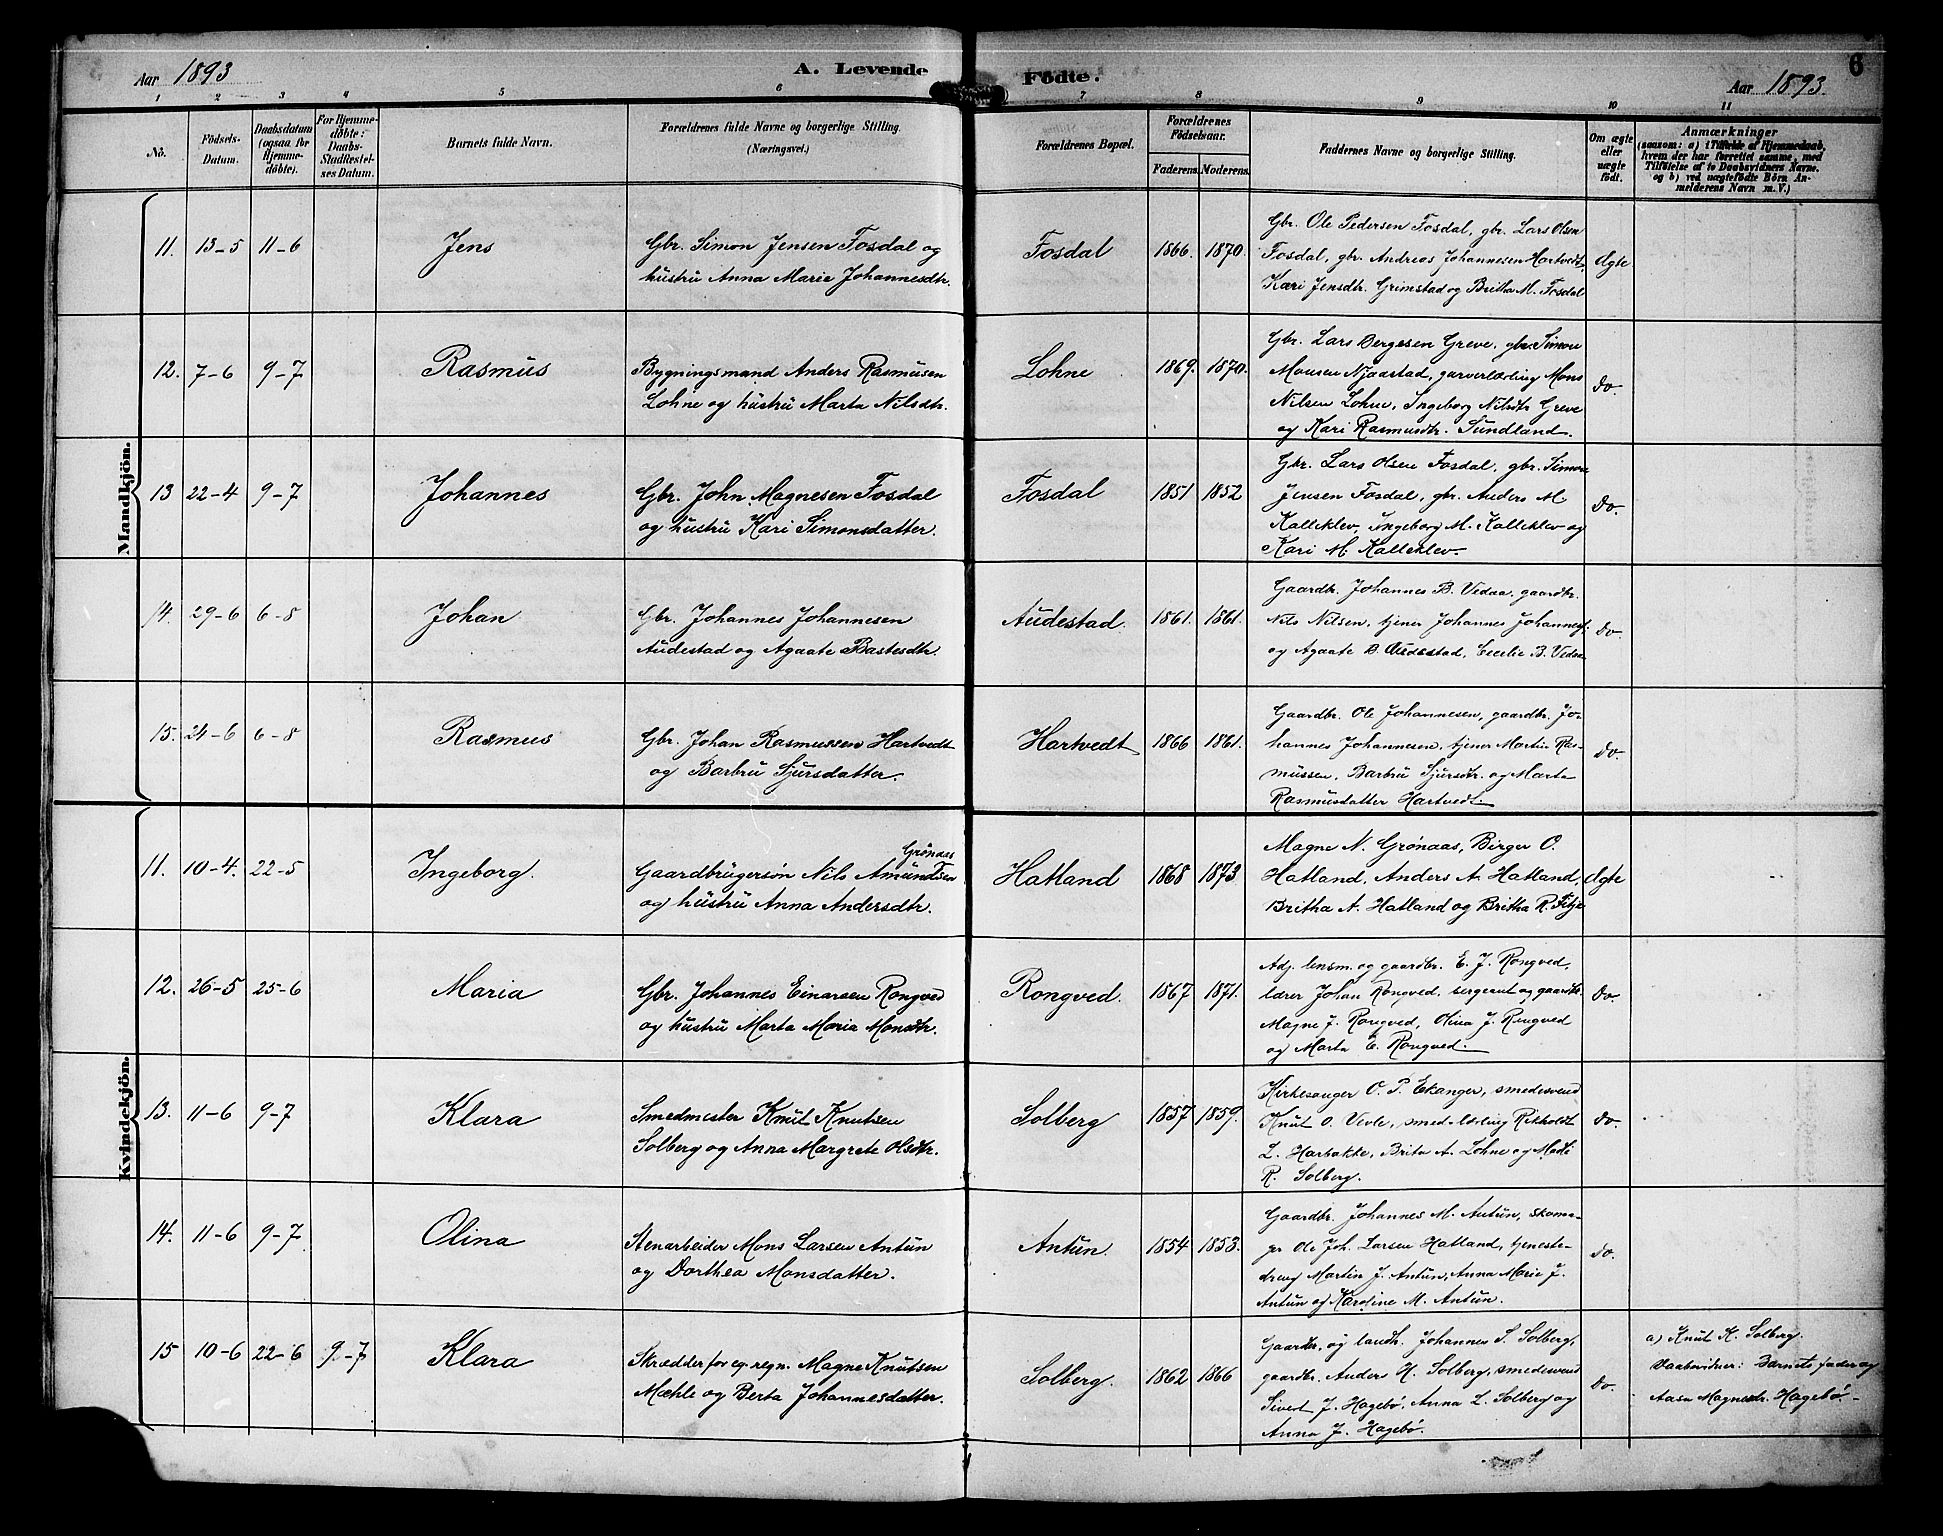 Aar 1893
A. Levende
Födte.
6
Aar 1893.
1 2 3 4 5 6 7 8 9 10 11
No.
Födsels-
Datum.
Daabsdatum
(ogsaa for
Hjemme-
döbte).
For Hjemme-
döbte:
Daabs-
Stadfæstel-
ses Datum.
Barnets fulde Navn.
Forældrenes fulde Navne og borgerlige Stilling.
(Næringsvei.)
Forældrenes Bopæl.
Forældrenes
Födselsaar.
Faderens. Moderens.
Faddernes Navne og borgerlige Stilling.
Om ægte
eller
uægte
födt.
Anmærkninger
(saasom: a) i Tilfælde af Hjemmedaab,
hvem der har forrettet samme, med
Tilföielse af to Daabsvidners Navne.
og b) ved uægtefödte Börn An-
melderens Navn m. V.)
Mandkjön.
11. 13-5 11-6 Jens
Gbr. Simon Jensen Fosdal og
hustru Anna Marie Johannesdtr.
Fosdal 1866. 1870.
Gbr. Ole Pedersen Fosdal, gbr. Lars Olsen
Fosdal, gbr. Andreas Johannesen Hartvedt,
Kari Jensdtr. Grimstad og Britha M. Fosdal
Ægte
12. 7-6 9-7 Rasmus
Bygningsmand Anders Rasmusen
Lohne og hustru Marta Nilsdtr.
Lohne 1869. 1870.
Gbr. Lars Bergesen Greve, gbr. Simon
Monsen Njaastad, garverlærling Mons
Nilsen Lohne, Ingeborg Nilsdtr Greve
og Kari Rasmusdtr. Sundland.
do.
13 22-4 9-7 Johannes
Gbr. John Magnesen Fosdal
og hustru Kari Simonsdatter.
Fosdal 1851 1852
Gbr. Lars Olsen Fosdal, gbr. Simon
Jensen Fosdal, gbr. Anders M.
Kalleklev, Ingeborg M. Kalleklev og
Kari M. Kalleklev.
do.
14. 29-6 6-8 Johan
Gbr. Johannes Johannesen
Audestad og Agaate Bastesdtr.
Audestad. 1861. 1861.
Gaardbr. Johannes B. Vedaa, gaardbr.
Nils Nilsen, tjener Johannes Johannesf.
og Agaate B. Audestad, Cecilie B. Vedaa
do.
15. 24-6 6-8 Rasmus
Gbr. Johan Rasmussen Hartvedt
og Barbru Sjursdatter.
Hartvedt 1866 1861.
Gaardbr. Ole Johannesen, gaardbr. Jo-
hannes Johannesen, tjener Martin Ras-
mussen, Barbru Sjursdtr. og Marta
Rasmusdatter Hartvedt.
do.
Kvindekjön.
11. 10-4. 22-5 Ingeborg.
Grönaas
Gaardbrugersön Nils Amundsen
og hustru Anna Andersdtr.
Hatland 1868 1873
Magne N. Grönaas, Birger O.
Hatland, Anders A. Hatland,
Britha A. Hatland og Britha R. Fitje
Ægte
12. 26-5 25-6 Maria
Gbr. Johannes Einarsen Rongved
og hustru Marta Maria Monsdtr.
Rongved. 1867 1871.
Adj. lensm. og gaardbr. E. J. Rongved,
lærer Johan Rongved, sergeant og gaardbr.
Magne J. Rongved, Olina J. Rongved
og Marta E. Rongved.
do.
13. 11-6 9-7 Klara
Smedmester Knut Knutsen
Solberg og Anna Margrete Olsdtr.
Solberg 1857 1859.
Kirkesanger O. P. Ekanger, smedesvend
Knut O. Vevle, smedlærling Rikholdt
L. Harbakke, Brita A. Lohne og Madi
R. Solberg.
do.
14. 11-6 9-7 Olina
Stenarbeider Mons Larsen Antun
og Dorthea Monsdatter.
Antun. 1854 1853.
Gaardbr. Johannes M. Antun, skoma-
ger Ole Joh. Larsen Hatland, tjeneste-
dreng Martin J. Antun, Anna Marie J.
Antun og Karoline M. Antun.
do.
15 10-6 22-6 9-7 Klara
Skrædder for eg. regn. Magne Knutsen
Mæhle og Berta Johannesdatter.
Solberg. 1862 1866
Gaardbr. og landh. Johannes S. Solberg,
gaardbr. Anders H. Solberg, smedesvend
Sivert J. Hagebö, Anna L. Solberg og
Anna J. Hagebö.
do.
a) Knut K. Solberg.
Daabsvidner: Barnets fader og
Aasa Magnesdtr. Hagebö.